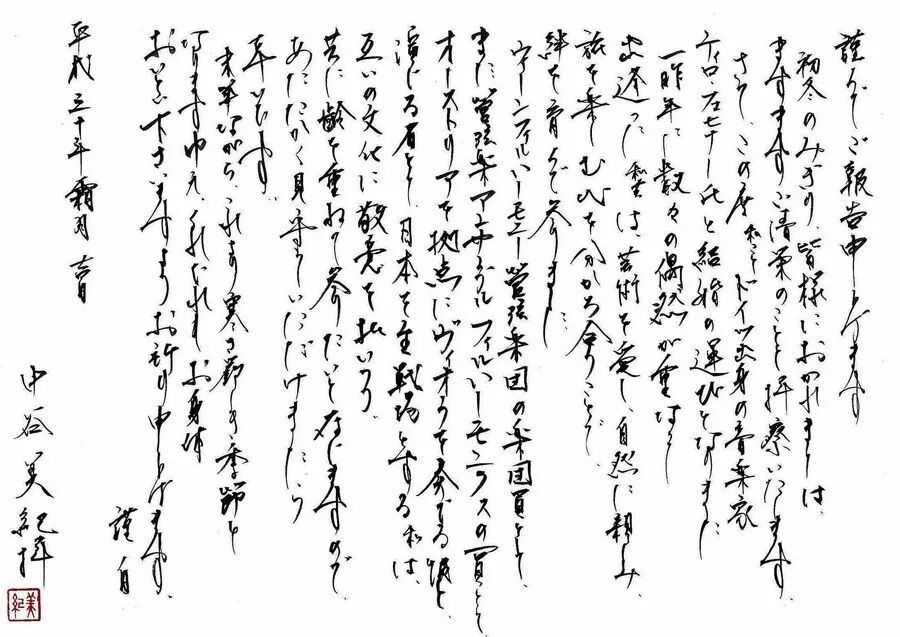 謹んでご報告申し上げます
初冬のみぎり、皆様におかれましては
ますますご清栄のことと拝察いたします。
さて、この度 私ことドイツ出身の音楽家
ティロ・フェヒナー氏と結婚の運びとなりました
一昨年に数々の偶然が重なり
出逢った私共は、芸術を愛し、自然に親しみ
旅を楽しむひとときを分かち合うことで
絆を育んで参りました
ウィーンフィルハーモニー管弦楽団の楽団員として、
また、管弦楽アンサンブルフィルハーモニクスの一員として
オーストリアを拠点にヴィオラを奏でる彼と
演じる者として日本を主戦場とする私は、
互いの文化に敬意を払いつつ
共に齢を重ねて参りたいと存じますので
あたたかく見守っていただけましたら
幸いです
末筆ながら、これより寒さ厳しき季節と
なりますゆえ、くれぐれもお身体
おいといくださいますようお祈り申し上げます。
謹白
平成三十年霜月
中谷美紀拝
美紀